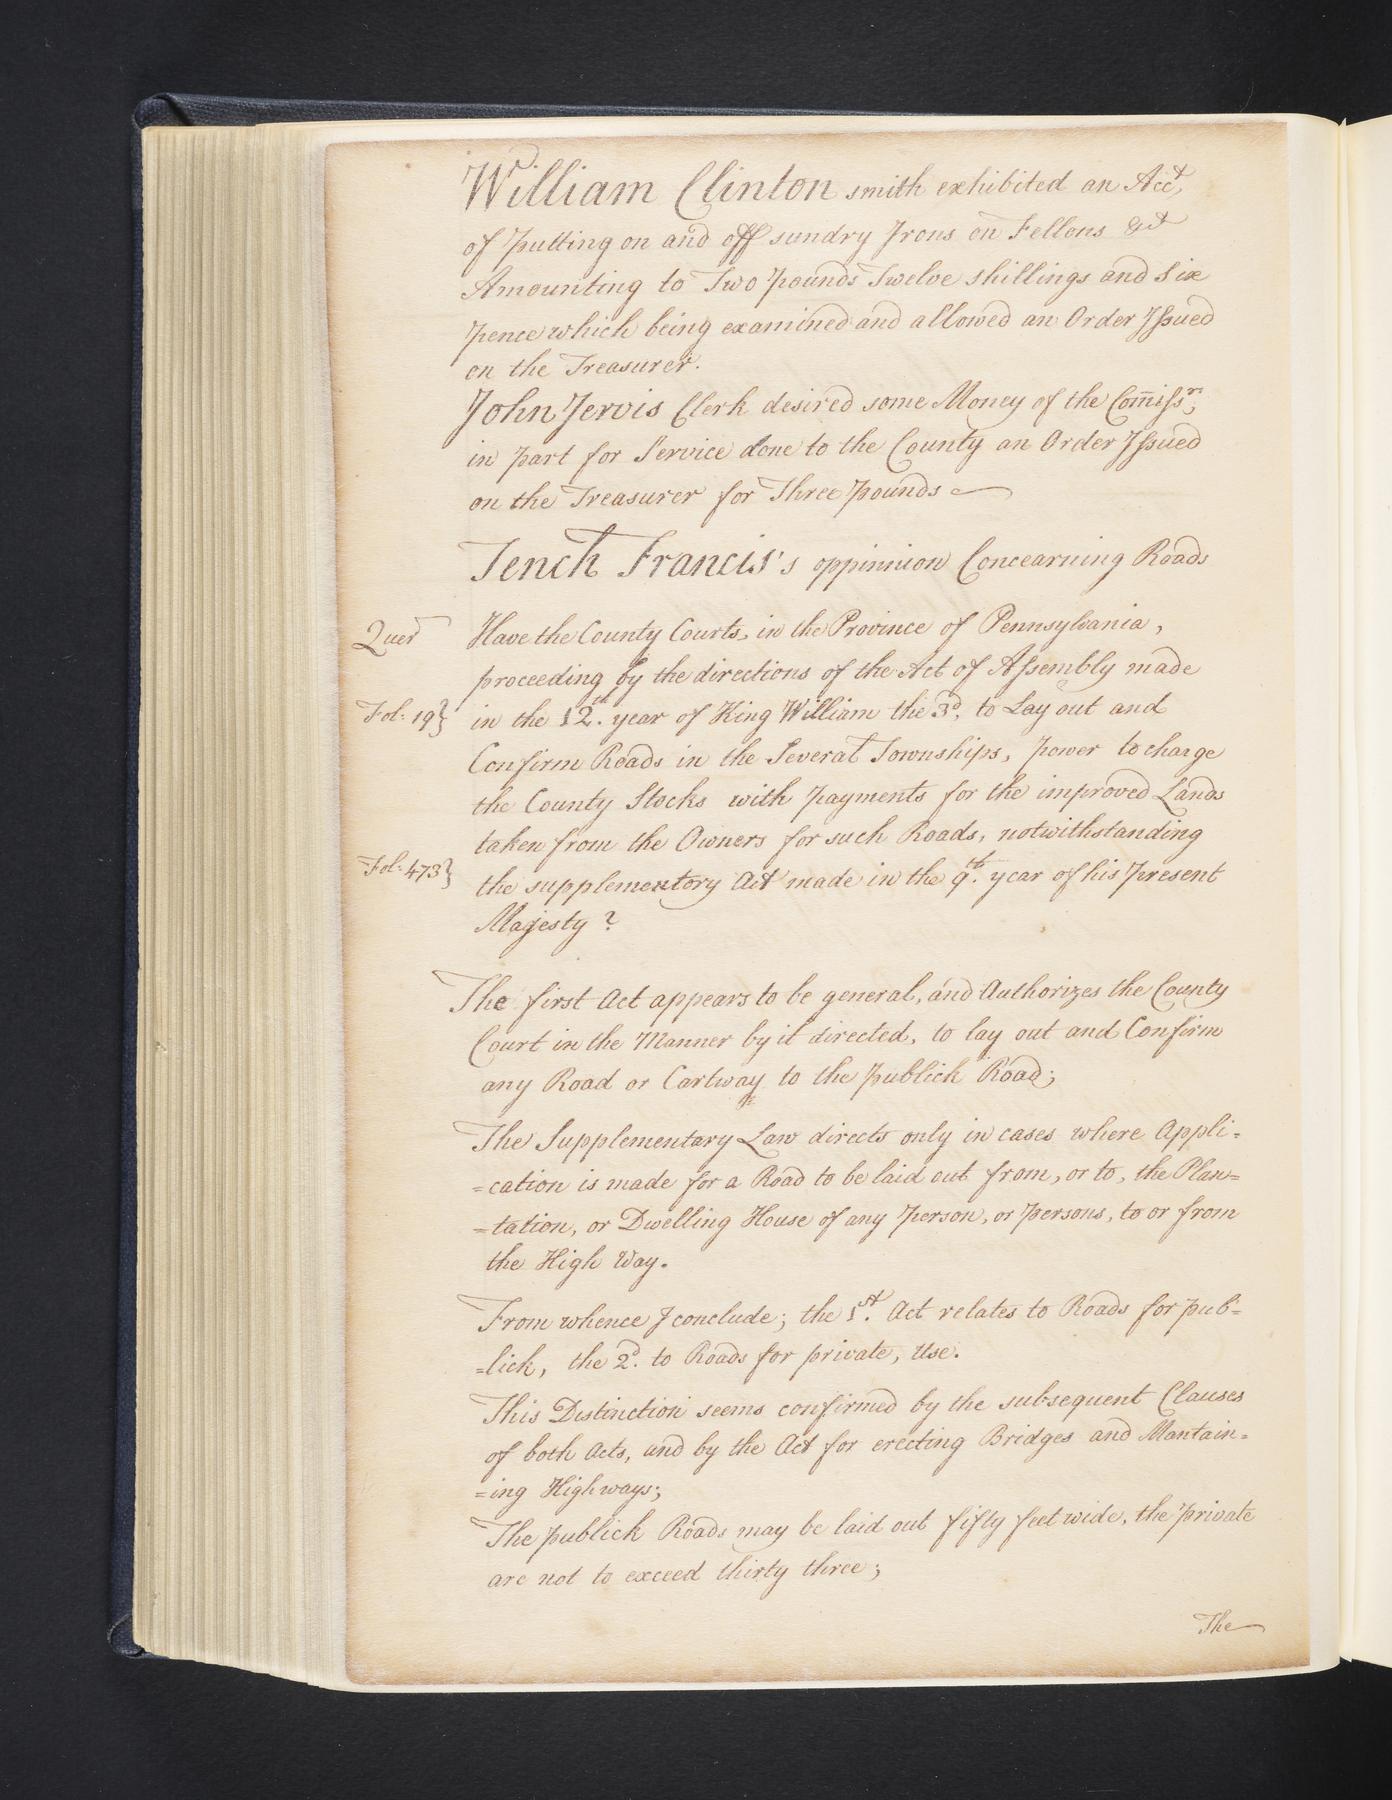 William Clinton smith exhibited an Acct,
of putting on and off sundry Irons on Fellons &ct
Amounting to Two pounds Twelve shillings and Six
pence which being examined and allowed an Order Issued
on the Treasurer.
John Jervis Clerk desired some Money of the Comissrs,
in part for Service done to the County an Order Issued
on the Treasurer for Three pounds
Tench Francis's oppinnion Concearning Roads
Quer
Have the County Courts, in the Province of Pennsylvania,
proceeding by the directions of the Act of Assembly made
Fol: 19}
in the 12th. year of King William the 3d, to Lay out and
Confirm Roads in the Several Townships, power to charge
the County Stocks with payments for the improved Lands
taken from the Owners for such Roads, notwithstanding
Fol: 473}
the supplementory Act made in the 9th. year of his present
Majesty ?
The first Act appears to be general, and Authorizes the County
Court in the Manner by it directed, to lay out and Confirm
any Road or Cartway to the publick Road;
The Supplementary Law directs only in cases where Appli=
=cation is made for a Road to be laid out from, or to, the Plan=
=tation, or Dwelling House of any person, or persons, to or from
the High Way.
From whence I conclude; the 1st. Act relates to Roads for pub=
=lick, the 2d. to Roads for private, Use.
This Distinction seems confirmed by the subsequent Clauses
of both Acts, and by the Act for erecting Bridges and Mantain=
=ing Highways;
The publick Roads may be laid out fifty feet wide, the private
are not to exceed thirty three;
The